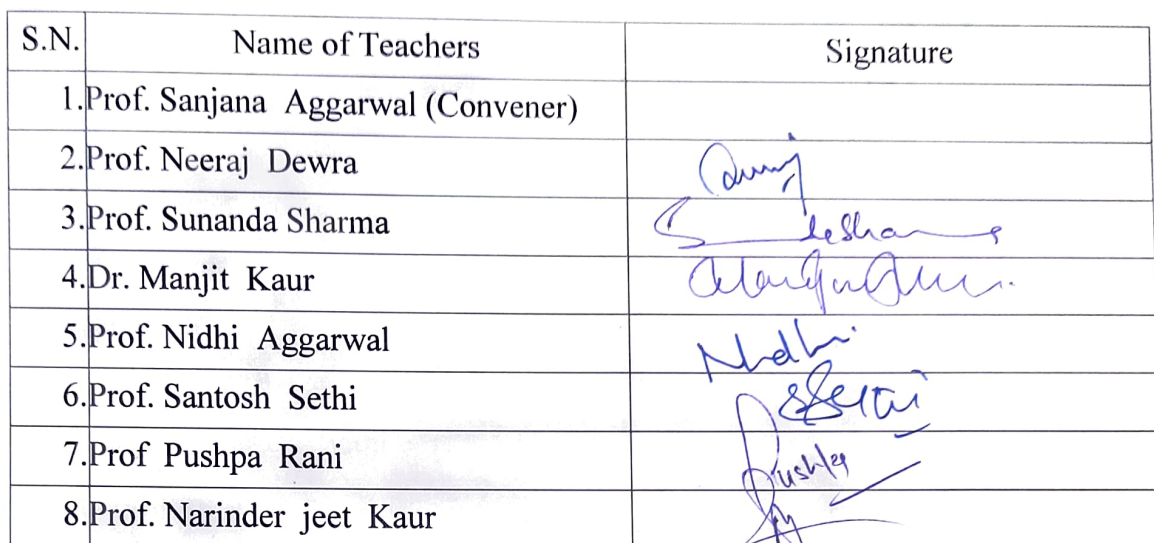 S.N. Name of Teachers Signature
1. Prof. Sanjana Aggarwal (Convener)
2. Prof. Neeraj Dewra
3. Prof. Sunanda Sharma
4. Dr. Manjit Kaur
5. Prof. Nidhi Aggarwal Nidhi
6. Prof. Santosh Sethi SSethi
7. Prof Pushpa Rani Pushpa
8. Prof. Narinder jeet Kaur